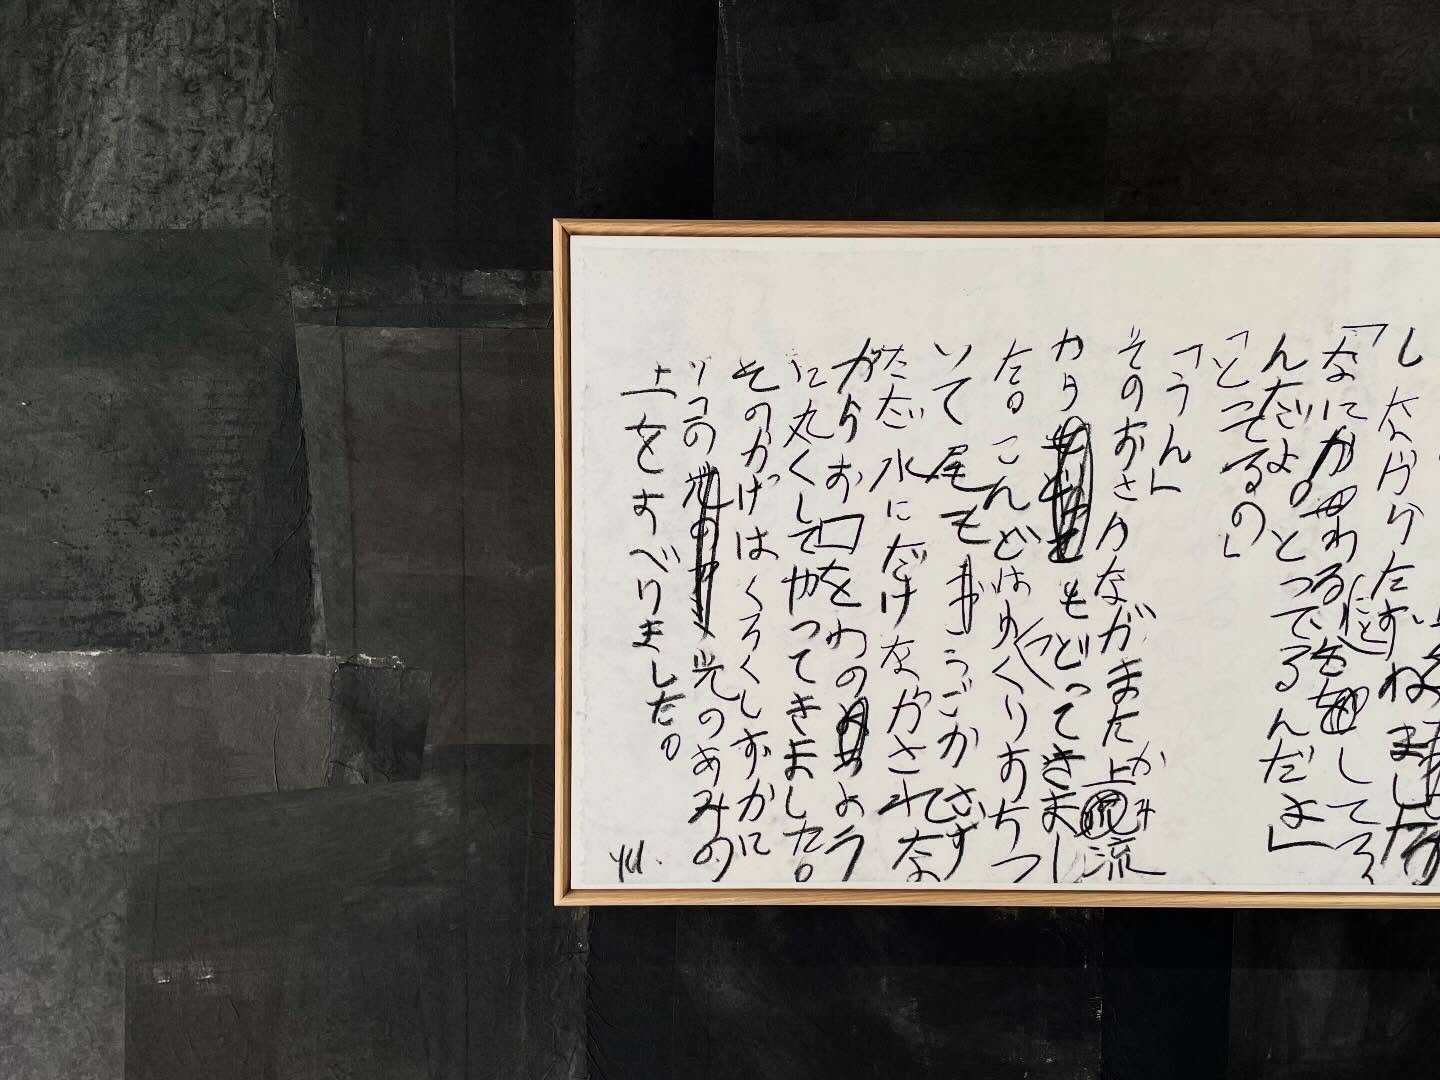 しながらたずねました
「なにか悪わるいことをしてる
んだよ。とってるんだよ」
「とってるの」
「うん」
そのおさかながまた上流かみ
からもどってきまし
た。こんどはゆっくりおちつ
いて尾もうごかさず
ただ水にだけながされな
がらお口をわのよう
に丸くしてやってきました。
そのかげはくろくしずかに
の光のあみの
上をすべりました。
yu.